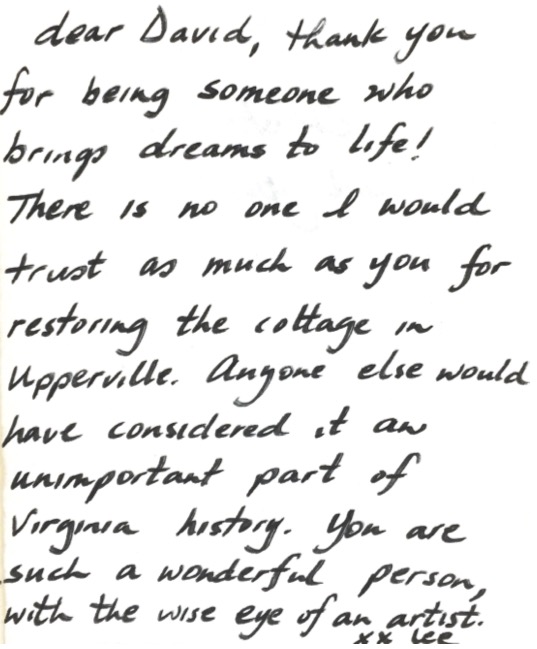 dear David, thank you
for being someone who
brings dreams to life!
There is no one I would
trust as much as you for
restoring the cottage in
Upperville. Anyone else would
have considered it an
unimportant part of
Virginia history. You are
such a wonderful person,
with the wise eye of an artist.
xx lee